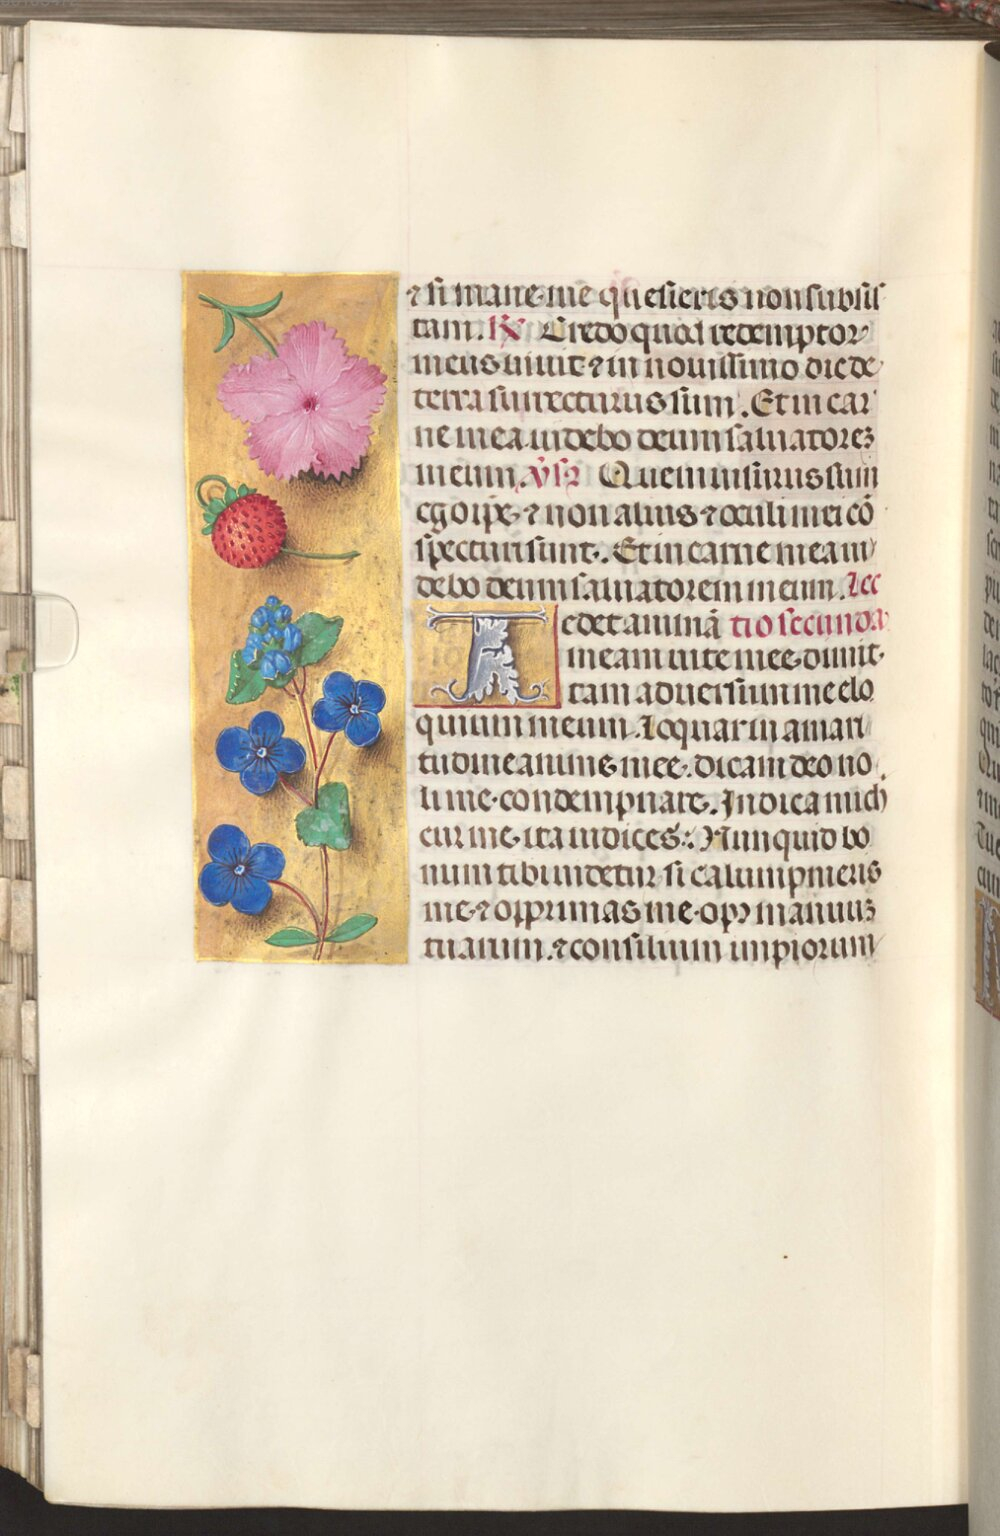 ⁊ si mane me quesieris non subsis
tam. R̸ Credo quod redemptor
meus uiuit ⁊ in nouissimo die de
terra surrecturus sum. Et in car
ne mea uidebo deum saluatorez
meum. v̓sꝰ Quem uisurus sum
ego ip̄e ⁊ non alius ⁊ oculi mei cō
specturi sunt. Et in carne mea ui
debo deum saluatorem meum. Lec
Tedet animā tio secunda
meam uite mee dimit
tam aduersum me elo
quium meum. Loquar in amari
tudine anime mee. dicam deo no
li me condempnare. Indica mich
cur me ita iudices. Nunquid bo
num tibi uidetur si calumpnieris
me ⁊ opprimas me op̄s manuuz
tuarum. ⁊ consilium impiorum